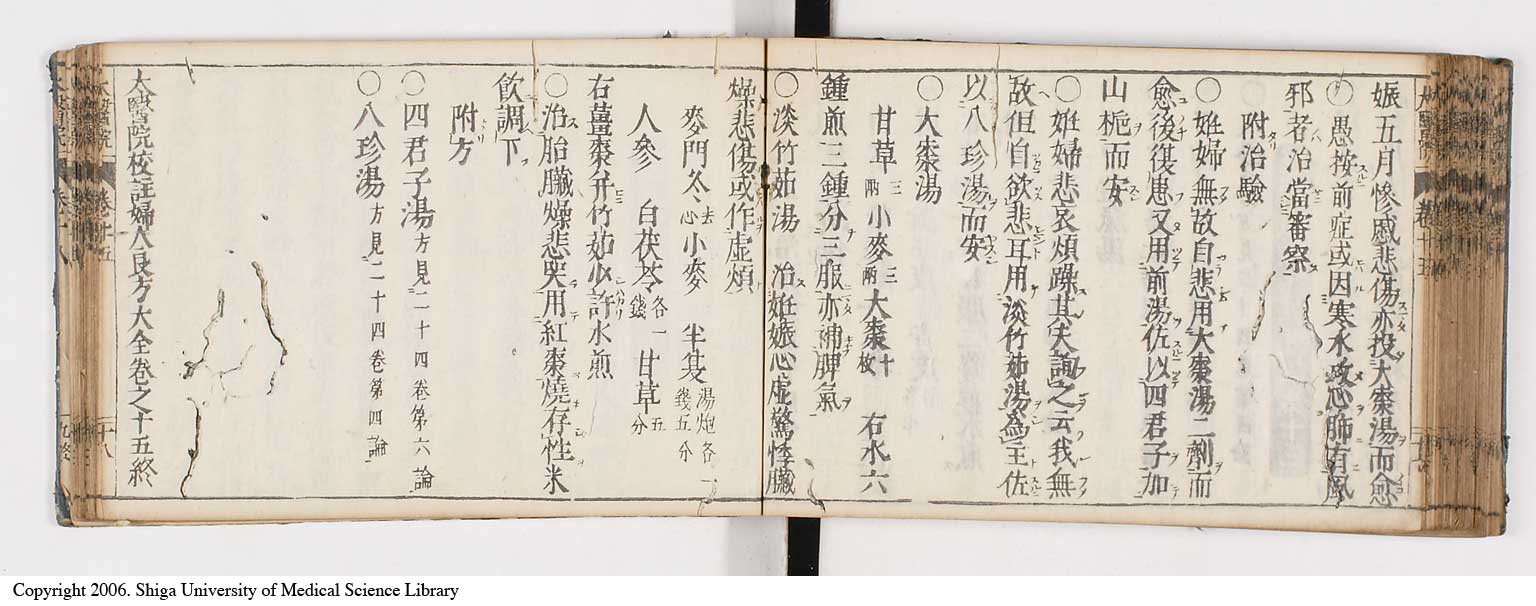 娠五月慘戚悲傷亦投大棗湯而愈
○愚按前症或因寒水攻心肺有風
邪者治當審察
附治驗
○妊婦無故自悲用大棗湯二劑而
愈後復患又用前湯佐以四君子加
山梔而安
○妊婦悲哀煩躁其夫詢之云我無
故但自欲悲耳用淡竹茹湯為主佐
以八珍湯而安
○大棗湯
甘草三兩 小麥三兩 大棗十枚 右水六
鍾煎三鍾分三服亦補脾氣
○淡竹茹湯 治妊娠心虛驚悸臟
燥悲傷或作虛煩
麥門冬去心 小麥 半夏湯炮各一錢五分
人參 白茯苓各一錢 甘草五分
右薑棗并竹茹少許水煎
○治胎臟燥悲哭用紅棗燒存性米
飲調下
附方
○四君子湯方見二十四卷第六論
○八珍湯方見二十四卷第四論
太醫院校註婦人良方大全卷之十五終
Copyright 2006. Shiga University of Medical Science Library